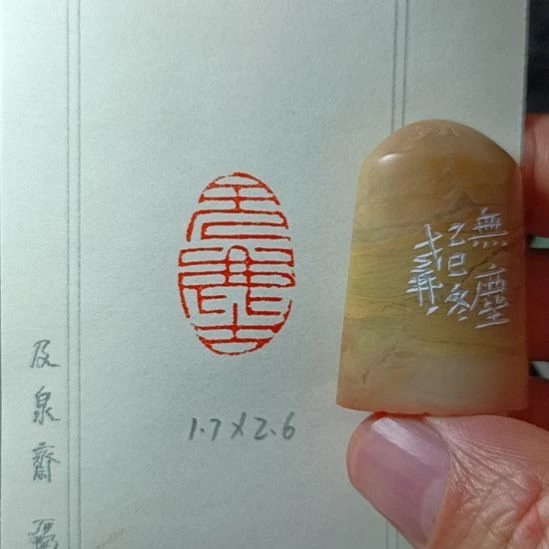 无尘
1.7×2.6
無塵
乙巳冬
及泉齋